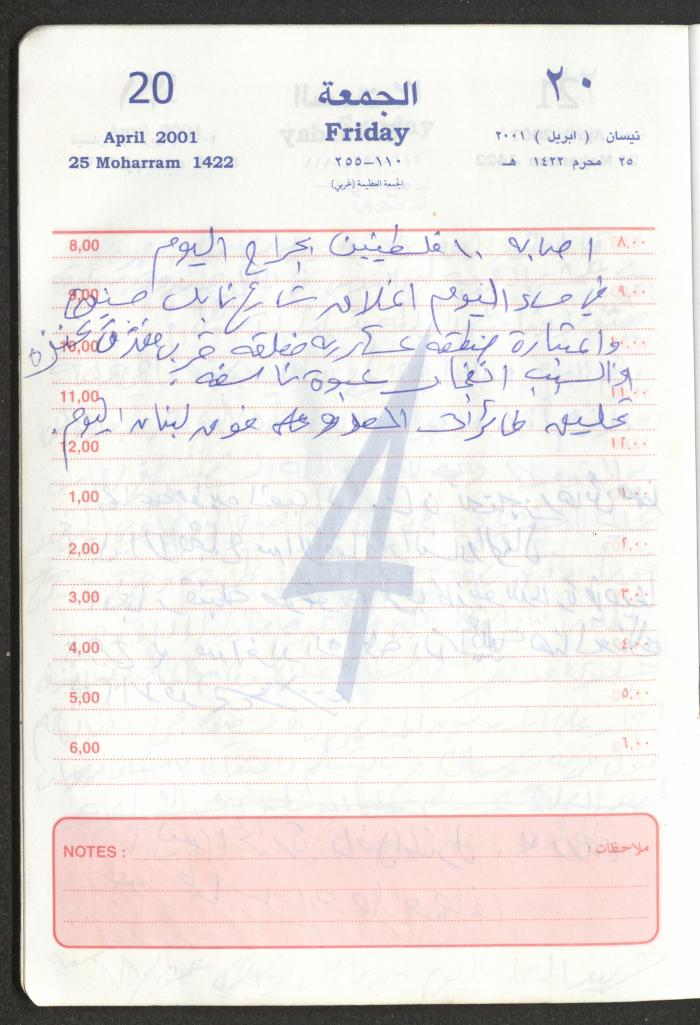 20
الجمعة
٢٠
April 2001
Friday
نيسان ( ابريل ) ٢٠٠١
25 Moharram 1422
١١٠-٢٥٥
٢٥ محرم ١٤٢٢ هـ
الجمعة العظيمة (غربي)
8,00 اصابه ١٠ فلسطينين بجراح اليوم ٨,٠٠
9,00 في مساء اليوم اغلاق شارع نابلس جنين ٩,٠٠
10,00 واعتبارة منطقه عسكريه مغلقه قرب مفترق
والسبب انفجار عبوة ناسفه .
11,00 ١١,٠٠
تحليق طائرات فوق لبنان اليوم .
12,00 ١٢,٠٠
1,00 ١,٠٠
2,00 ٢,٠٠
3,00 ٣,٠٠
4
4,00 ٤,٠٠
5,00 ٥,٠٠
6,00 ٦,٠٠
NOTES : ملاحظات :